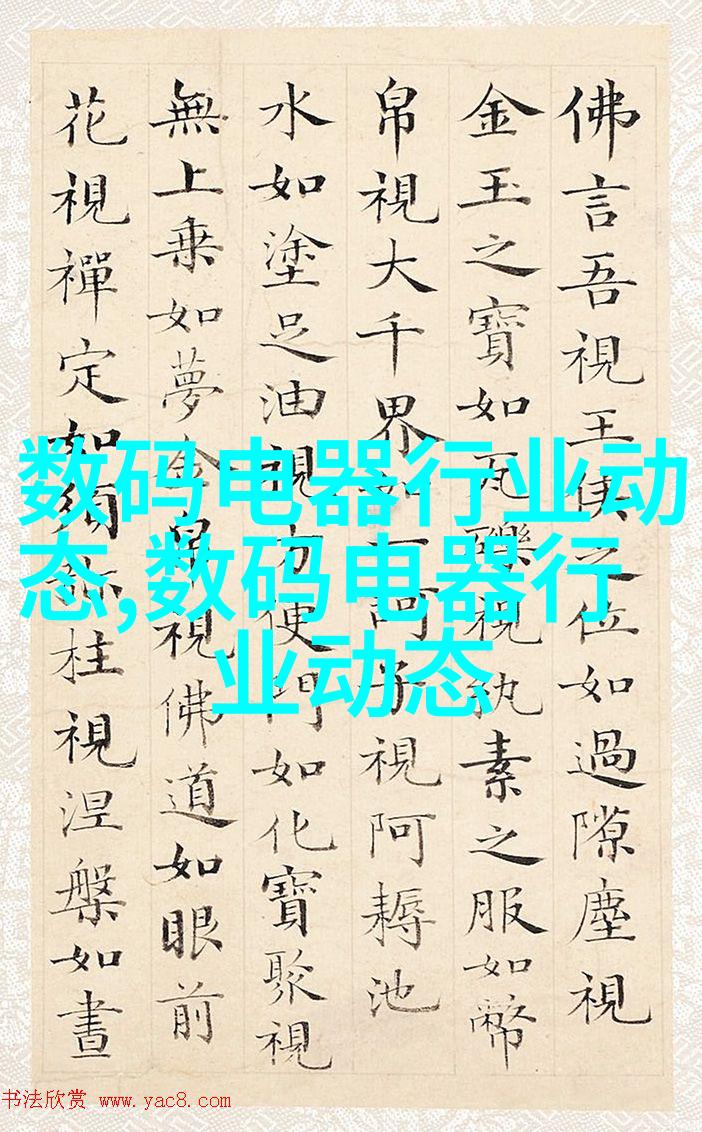 佛言吾視王侯之位如過隙塵視
金玉之寶如瓦礫視紈素之服如幣
帛視大千界如一訶子視阿耨池
水如塗足油視方便門如化寶聚視
無上乗如夢金帛視佛道如眼前
花視禪定如須弥柱視涅槃如晝
数码电器行业动
态,数码电器行
业动态
书法欣赏 www.yac8.com